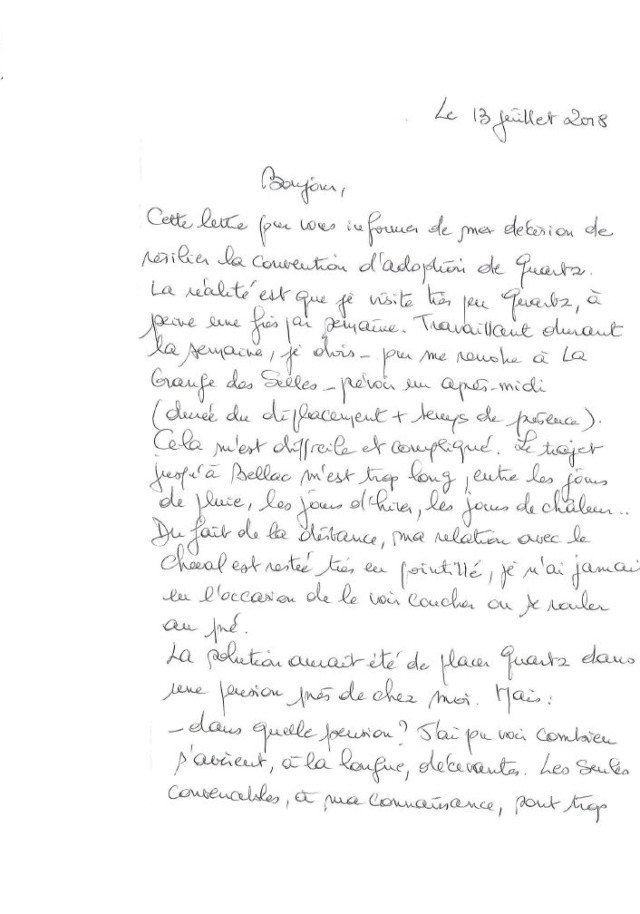 Le 13 juillet 2018
Bonjour,
Cette lettre pour vous informer de ma décision de
résilier la convention d'adoption de Quartz.
La réalité est que je visite très peu Quartz, à
peine une fois par semaine. Travaillant durant
la semaine, je dois - pour me rendre à La
Grange des Selles - prévoir un après-midi
(durée du déplacement + temps de présence).
Cela m'est difficile et compliqué. Le trajet
jusqu'à Bellac m'est trop long, entre les jours
de pluie, les jours d'hiver, les jours de châleur..
Du fait de la distance, ma relation avec le
cheval est restée très en pointillé, je n'ai jamai
eu l'occasion de le voir coucher ou se rouler
au pré.
La solution aurait été de placer Quartz dans
une pension près de chez moi. Mais :
- dans quelle pension? J'ai pu voir combien
s'avèrent, à la longue, décevantes. Les seules
convenables, à ma connaissance, sont trop